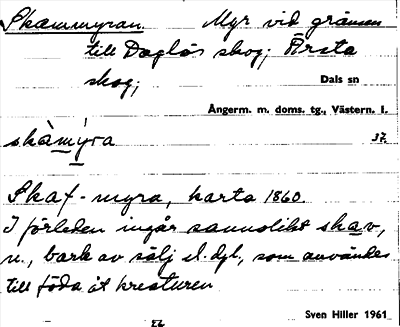 Skammyran. Myr vid gränsen
till Daglös skog; Årsta
skog;
Dals sn
Ångerm. m. doms. tg., Västern. l.
skàmýra
37.
Skaf-myra, karta 1860.
I förleden ingår sannolikt skav,
n., bark av sälj el. dyl., som användes
till föda åt kreaturen
Sven Hiller 1961